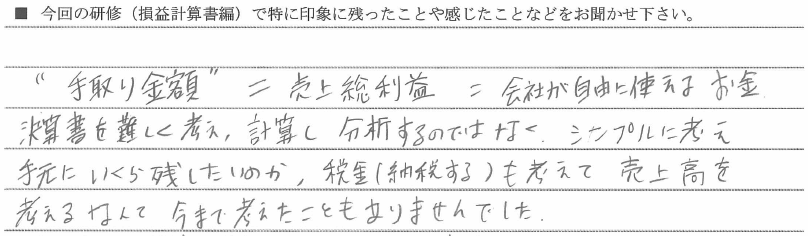 ■ 今回の研修（損益計算書編）で特に印象に残ったことや感じたことなどをお聞かせ下さい。
“手取り金額” = 売上総利益 = 会社が自由に使えるお金.
決算書を難しく考え, 計算し 分析するのではなく. シンプルに考え
手元にいくら残したいのか, 税金(納税する)も考えて 売上高を
考えるなんて 今まで考えたこともありませんでした.